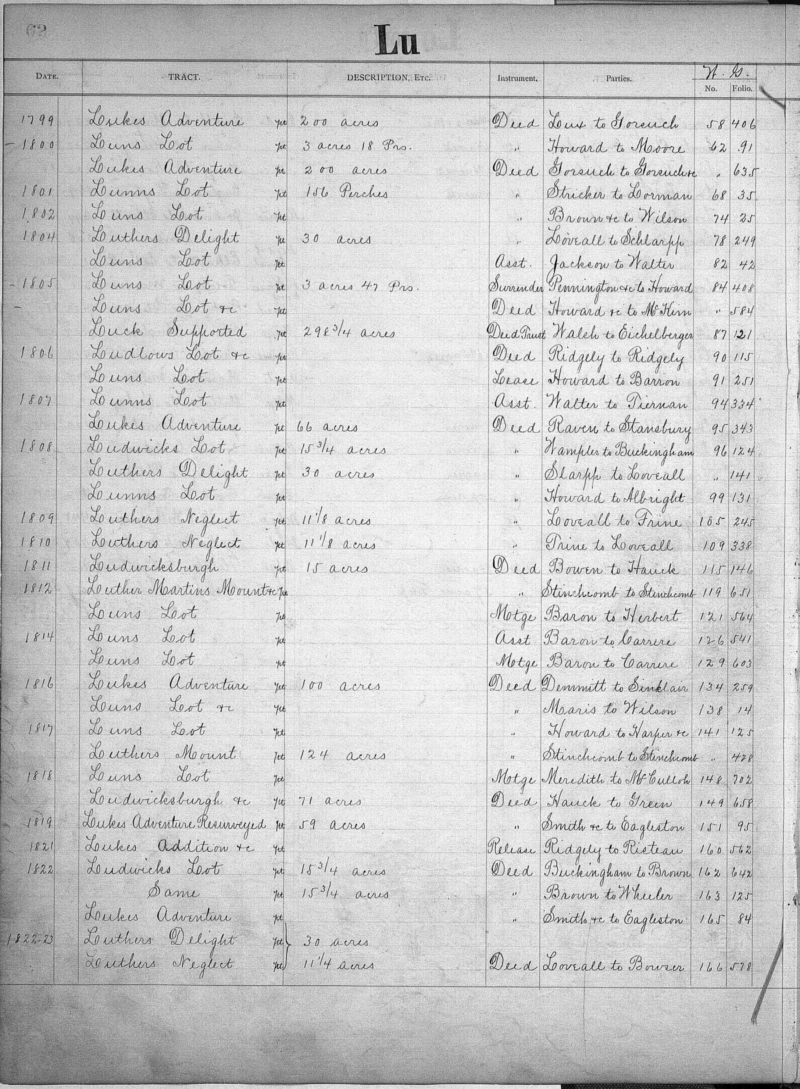 62
Lu
DATE. TRACT. DESCRIPTION, ETC. Instrument. Parties. W. G. No. Folio.
1799 Lukes Adventure pt 200 acres Deed Lux to Gorsuch 58 406
- 1800 Luns Lot pt 3 acres 18 Prs. " Howard to Moore 62 91
Lukes Adventure pt 200 acres Deed Gorsuch to Gorsuch &c " 635
1801 Lunns Lot pt 156 Perches " Stricker to Lorman 68 35
1802 Luns Lot pt " Brown &c to Wilson 74 25
1804 Luthers Delight pt 30 acres " Loveall to Schlarpp 78 249
Luns Lot pt Asst. Jackson to Walter 82 42
- 1805 Luns Lot pt 3 acres 47 Prs. Surrender Pennington &c to Howard 84 408
- Luns Lot &c pt Deed Howard &c to McKern " 584
Luck Supported pt 298 3/4 acres Deed Trust Walsh to Eichelberger 87 121
1806 Ludlows Lot &c pt Deed Ridgely to Ridgely 90 115
Luns Lot pt Lease Howard to Barron 91 251
1807 Lunns Lot pt Asst. Walter to Tiernan 94 334
Lukes Adventure pt 66 acres Deed Raven to Stansbury 95 343
1808 Ludwicks Lot pt 15 3/4 acres " Wampler to Buckingham 96 124
Luthers Delight pt 30 acres " Slarpp to Loveall " 141
Lunns Lot pt " Howard to Albright 99 131
1809 Luthers Neglect pt 11 1/8 acres " Loveall to Frine 105 245
1810 Luthers Neglect pt 11 1/8 acres " Prine to Loveall 109 338
1811 Ludwicksburgh pt 15 acres Deed Bowen to Hauck 115 146
1812 Luther Martins Mount &c pt " Stinchcomb to Stinchcomb 119 651
Luns Lot pt Motge Baron to Herbert 121 564
1814 Luns Lot pt Asst Baron to Carrere 126 541
Luns Lot pt Motge Baron to Carrere 129 603
1816 Lukes Adventure pt 100 acres Deed Demmitt to Sinklair 134 259
Luns Lot &c pt " Maris to Wilson 138 14
1817 Luns Lot pt " Howard to Harper &c 141 125
Luthers Mount pt 124 acres " Stinchcomb to Stinchcomb " 428
1818 Luns Lot pt Motge Meredith to McCulloh 148 702
Ludwicksburgh &c pt 71 acres Deed Hauck to Green 149 658
1819 Lukes Adventure Resurveyed pt 59 acres " Smith &c to Eagleston 151 95
1821 Lukes Addition &c pt Release Ridgely to Risteau 160 562
1822 Ludwicks Lot pt 15 3/4 acres Deed Buckingham to Brown 162 642
Same pt 15 3/4 acres " Brown to Wheeler 163 125
Lukes Adventure pt " Smith &c to Eagleston 165 84
1822-23 Luthers Delight pt 30 acres
Luthers Neglect pt 11 1/4 acres Deed Loveall to Bowser 166 578